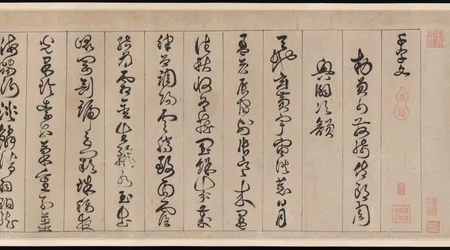 千字文
勑員外散騎侍郎周
興嗣次韻
天地玄黃宇宙洪荒日月
盈昃辰宿列張寒來暑
往秋收冬藏閏餘成歲
律呂調陽雲騰致雨露
結為霜金生麗水玉出
崑岡劍號巨闕珠稱夜
光果珍李柰菜重芥薑
海鹹河淡鱗潛羽翔龍